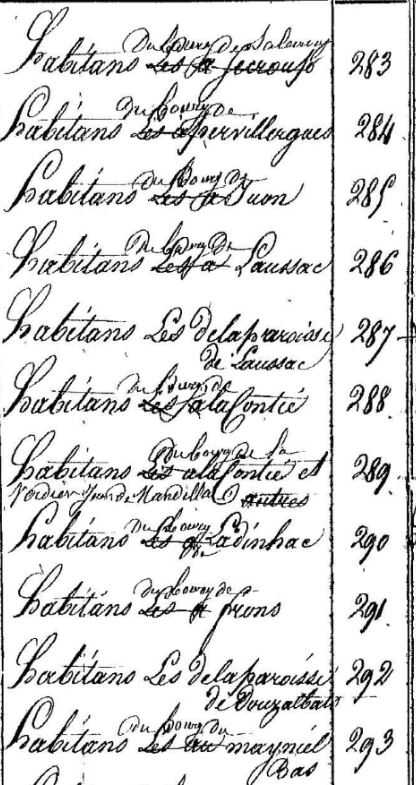 Du Bourg de
habitans Les a 283
Du bourg de
habitans Les a pervillergues 284
Du Bourg De
habitans Les a Juon 285
Du bourg De
habitans Les a Laussac 286
habitans Les de la paroisse 287
de Laussac
du bourg de
habitans Les a la Contie 288
Du bourg de la
habitans Les a la Contie et 289
Verdier Jean de Mandillac autres
Du bourg
habitans Les Ladinhac 290
du bourg de
habitans Les a frons 291
habitans Les de la paroisse 292
de Douzalbats
du bourg du
habitans Les au mayniel 293
Bas